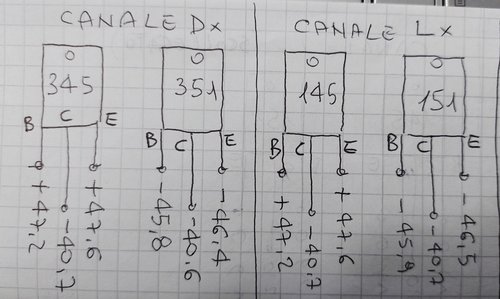 CANALE Dx
CANALE Lx
345
351
145
151
B C E
B C E
B C E
B C E
+47,2
-40,7
+47,6
-45,8
-40,6
-46,4
+47,2
-40,7
+47,6
-45,9
-40,7
-46,5